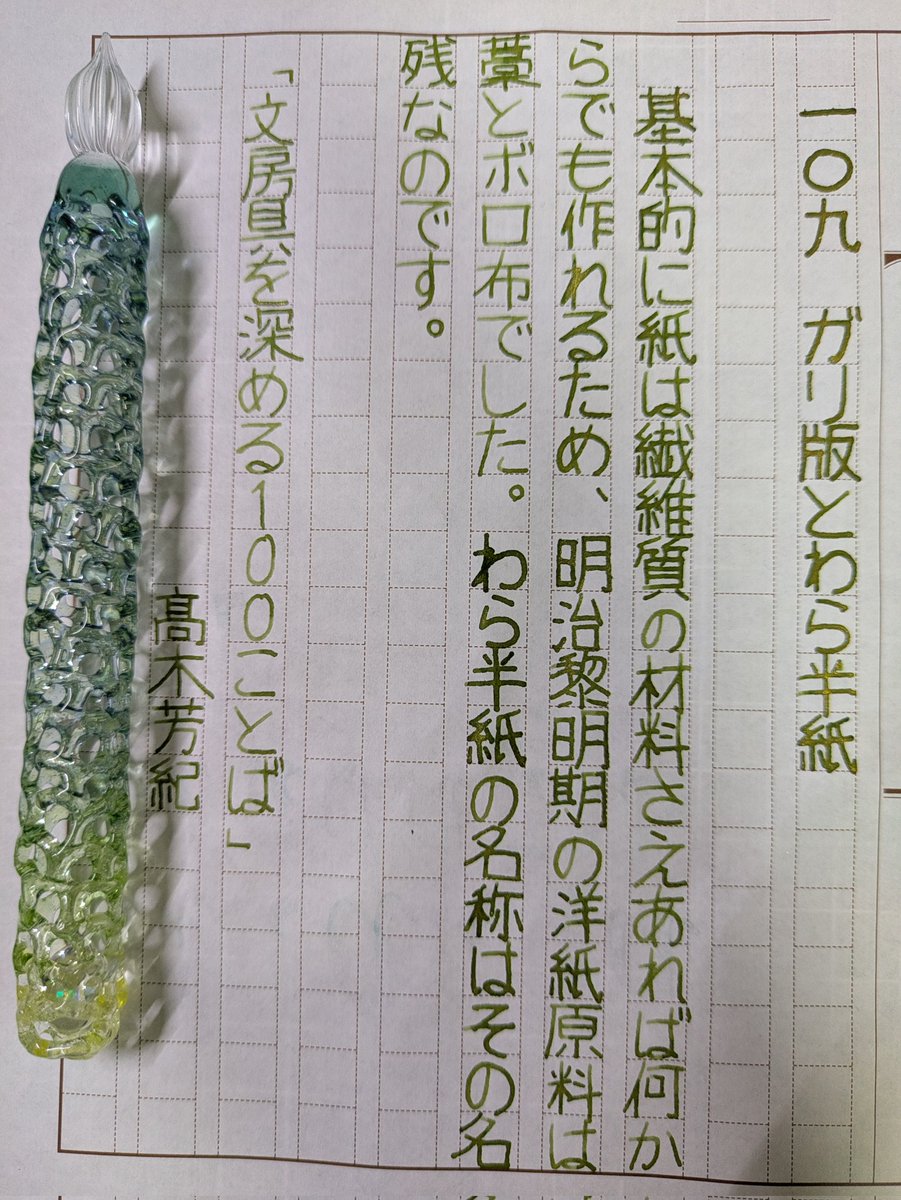 一〇九　ガリ版とわら半紙
基本的に紙は繊維質の材料さえあれば何か
らでも作れるため、明治黎明期の洋紙原料は
藁とボロ布でした。わら半紙の名称はその名
残なのです。
「文房具を深める100ことば」
髙木芳紀